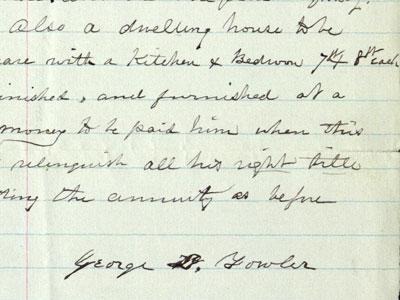 Also a dwelling house to be
are with a Kitchen & Bedroom 7ft 8ft each
inished, and furnished at a
money to be paid him when this
relinquish all his right title
ring the annuity as before
George B. Fowler